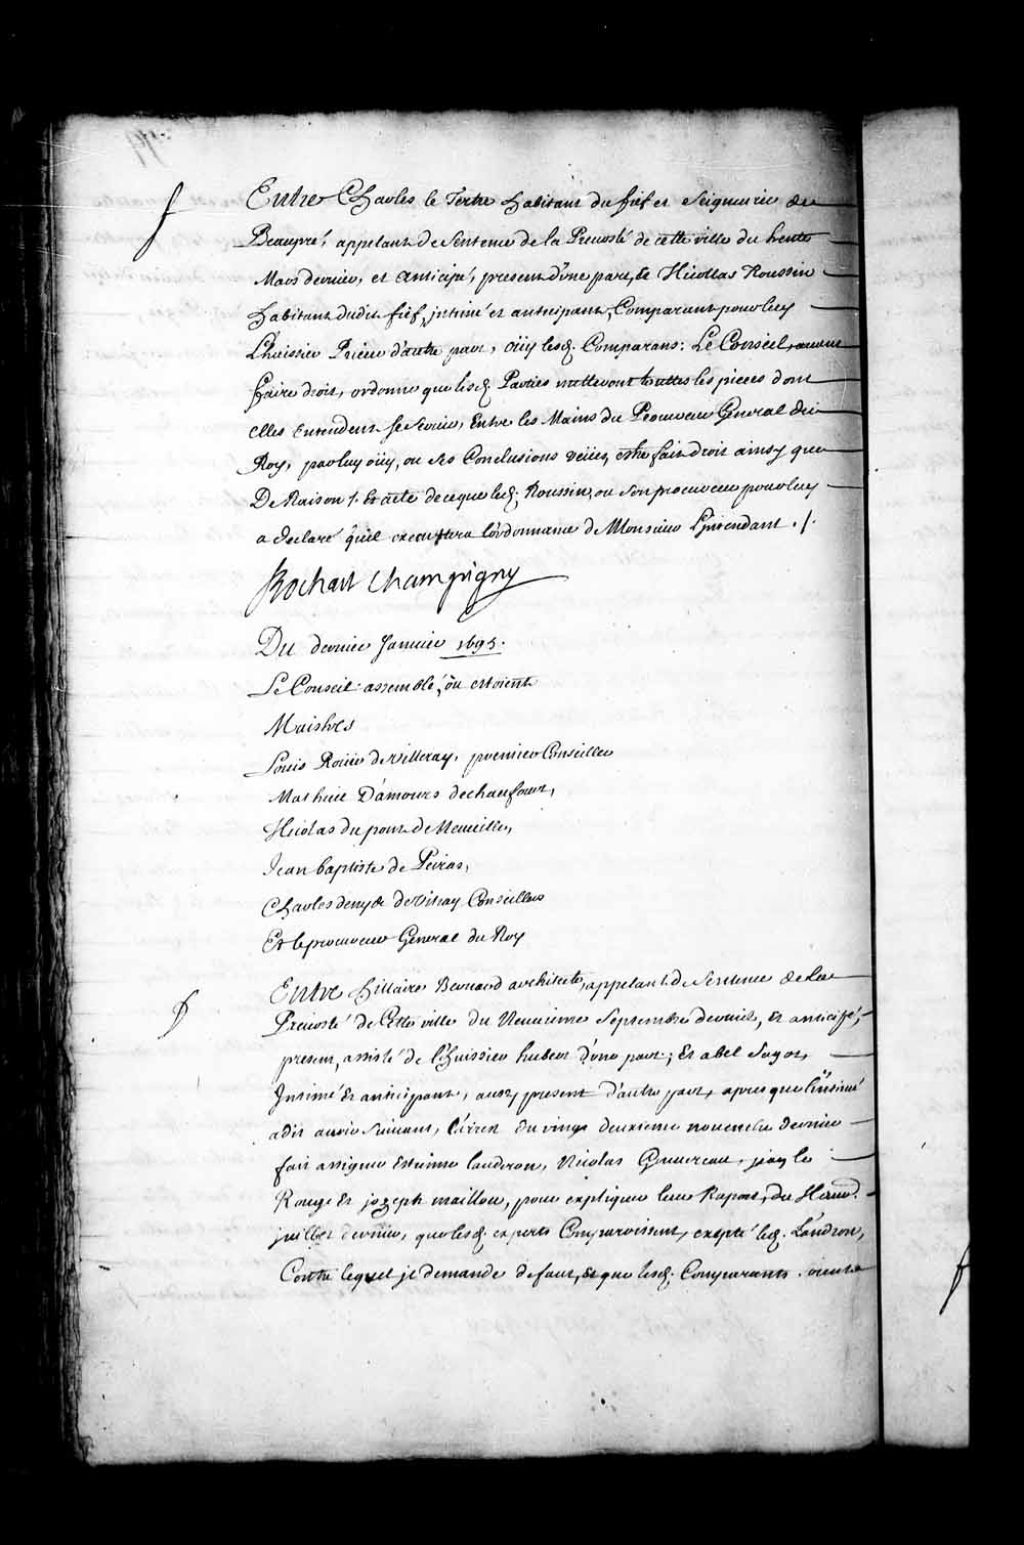 Entre Charles le Tertre habitant du fief et Seigneurie de
Beaupré, appelant de Sentence de la Preuosté de cette ville du trente
Mars dernier, et anticipé, present d'une part, & Nicollas Roussin
habitant dudit fief, intimé et anticipant, Comparant pour luy
L'huissier Prieur d'autre part, oüy lesd. Comparans: Le Conseil, auant
faire droit, ordonne que lesd. Parties mettront touttes les pieces dont
elles entendent se seruir, Entre les Mains du Procureur General du
Roy, pour luy oüy, ou ses Conclusions veües, estre fait droit ainsy que
De Raison /. Et acte de ce que led. Roussin, ou son procureur pour luy
a declaré qu'il executtera l'ordonnance de Monsieur L'jntendant ./.
Bochart Champigny
Du dernier Januier 1695.
Le Conseil assemblé, où estoient
Maistres
Louis Roüer de Villeray, premier Conseiller
Mathieu D'amours deschaufour,
Nicolas dupont de Neuuille,
Jean baptiste de Peiras,
Charles denys de Vitray Conseillers
Et le procureur General du Roy
Entre hillaire Bernard architecte, appelant de Sentence de la
Preuosté de Cette ville du Neuuieme Septembre dernier, et anticipé,
present, assisté de l'huissier hubert d'une part; Et abel Sagot,
Intimé et anticipant, aussy present d'autre part, apres que l'intimé
a dit auoir suiuant, l'arrest du vingt deuxieme nouembre dernier
fait assigner Estienne Landron, Nicolas Gauureau, jean le
Rouge et joseph maillou, pour expliquer leur Raport, du
juillet dernier, que lesd. experts Comparoissent, exepté led. Landron,
Contre lequel jl demande defaut, et que lesd. Comparants